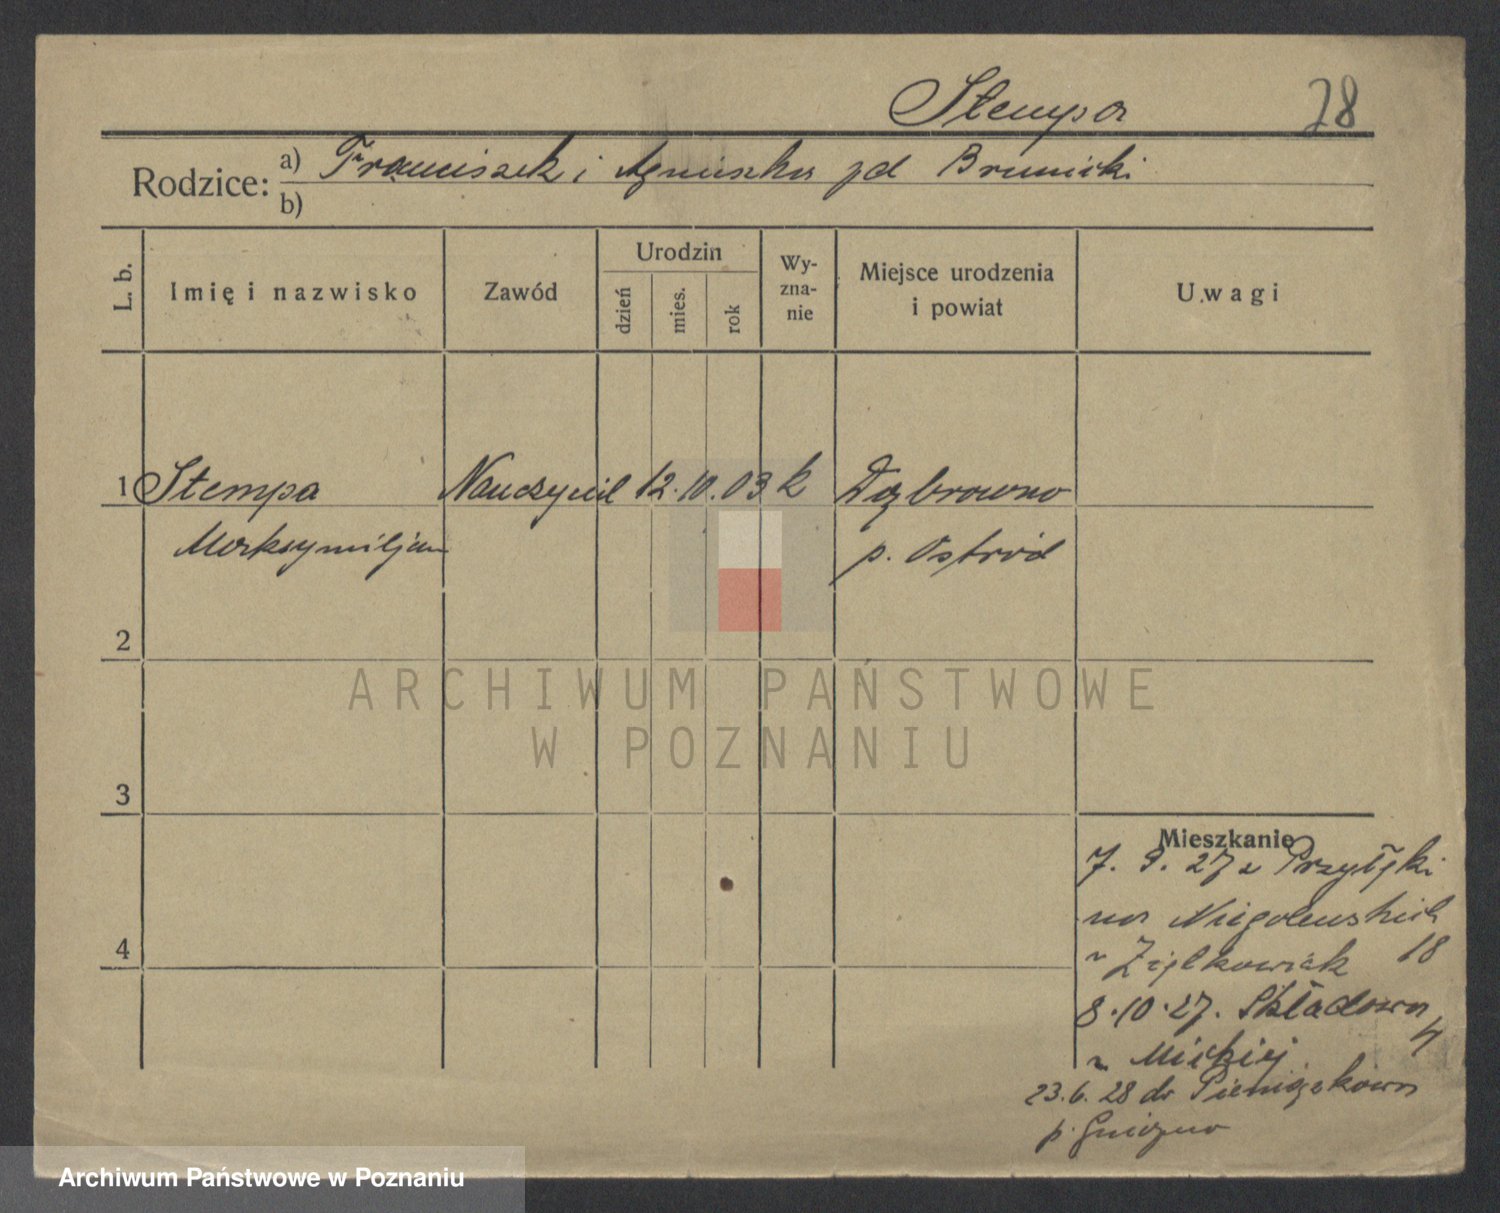 Stempa 78
Rodzice: a) Franciszek i Agnieszka zd Brunicki
b)
L. b. Imię i nazwisko Zawód Urodzin dzień mies. rok Wyznanie Miejsce urodzenia i powiat Uwagi
1 Stempa Nauczyciel 12. 10. 03 k Dąbrowno
Maksymiljan p. Ostród
2
ARCHIWUM PAŃSTWOWE
W POZNANIU
3
Mieszkanie
7. 9. 27 z Przyłęki
na Niegolewskich
u Ziętkowiak 18
8. 10. 27. Składowa 4
u Mickiej
23. 6. 28 do Pieniążkowa
p. Gniezno
4
Archiwum Państwowe w Poznaniu